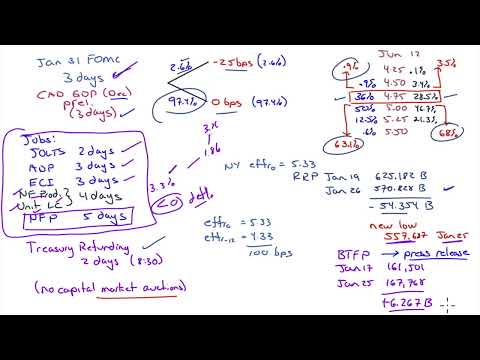 Jan 31 FOMC
3 days
CAD GDP (Dec)
prel.
(3 days)
2.6%
-25 bps (2.6%)
97.4%
0 bps (97.4%)
Jobs:
JOLTS 2 days
ADP 3 days
ECI 3 days
NF Prod.
Unit LC
4 days
NFP 5 days
3.x
1.86
3.3%
<0 defl.
Treasury Refunding
2 days (8:30)
(no capital market auctions)
NY effr₀ = 5.33
effr₀ = 5.33
effr₋₁₂ = 4.33
100 bps
Jun 12
.9% 4.25 .1% 35%
.9% 4.50 3.4%
36% 4.75 28.5%
50% 5.00 46.7%
12.5% 5.25 21.3%
.6% 5.50
63.1% 68%
RRP Jan 19 625.182 B
Jan 26 570.828 B
- 54.354 B
new low
557.687 Jan 25
BTFP → press release
Jan 17 161,501
Jan 25 167,768
+6.267 B